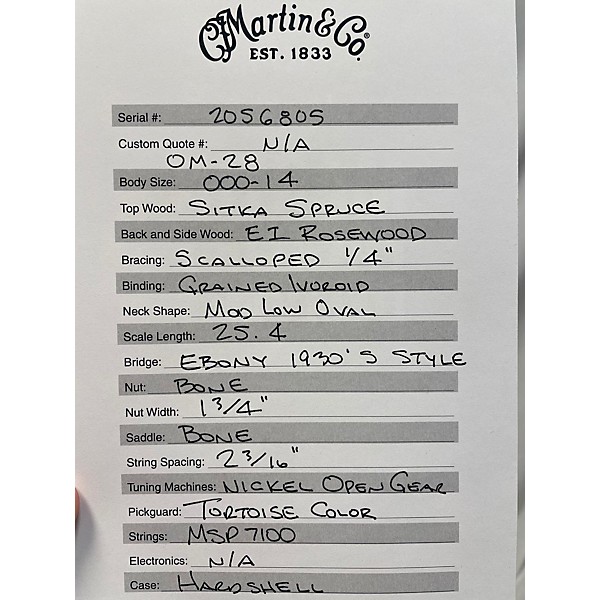 CFMartin & Co.®
EST. 1833
Serial #: 2056805
Custom Quote #: N/A
OM-28
Body Size: 000-14
Top Wood: SITKA SPRUCE
Back and Side Wood: EI ROSEWOOD
Bracing: SCALLOPED 1/4"
Binding: GRAINED IVOROID
Neck Shape: MOD LOW OVAL
Scale Length: 25.4
Bridge: EBONY 1930'S STYLE
Nut: BONE
Nut Width: 1 3/4"
Saddle: BONE
String Spacing: 2 3/16"
Tuning Machines: NICKEL OPEN GEAR
Pickguard: TORTOISE COLOR
Strings: MSP7100
Electronics: N/A
Case: HARDSHELL